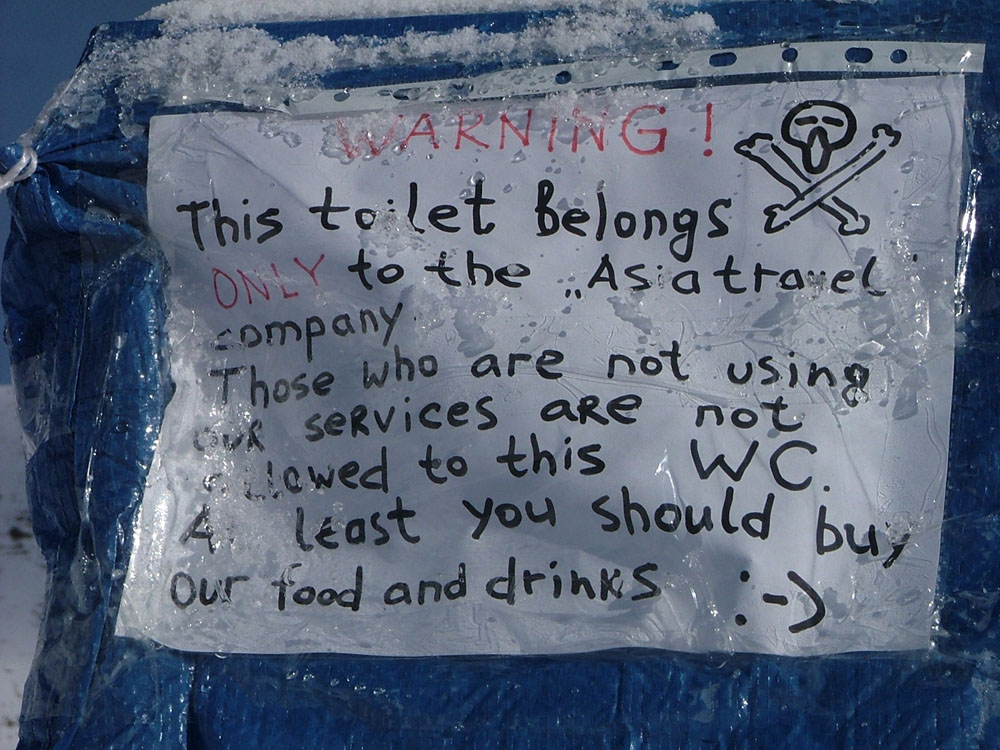 WARNING!
This toilet Belongs
ONLY to the „Asia travel"
company.
Those who are not using
our services are not
allowed to this WC.
At least you should buy
our food and drinks :-)